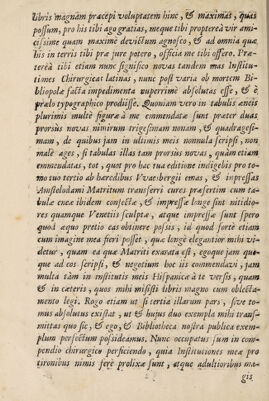 libris magnam præcepi voluptatem hinc, & maximas, quas
possum, pro his tibi ago gratias, meque tibi propterea vir ami-
cissime quam maximè devictum agnosco, & ad omnia quæ
his in terris tibi præ jure potero, officia me tibi offero. Præ-
terea tibi etiam nunc significo novas tandem mas Institu-
tiones Chirurgicas latinas, nunc post varia ob mortem Bi-
bliopolæ facta impedimenta nuperrimè absolutas esse, & è
prælo typographico prodiisse. Quoniam vero in tabulis æneis
plurimis multæ figuræ à me emmendatæ sunt præter duas
prorsus novas nimirum trigesimam nonam, & quadragesi-
mam, de quibus jam in ultimis meis nonnula scripsi, non
malè ages, si tabulas illas tam prorsus novas, quàm etiam
emmendatas, tot, quot pro hac tua editione indigebis pro to-
mo tuo tertio ab hæredibus Wvaesbergii emas, & impressas
Amstelodami Matritum transferri cures præsertim cum ta-
bulæ eneæ ibidem confectæ, & impressæ longè sint nitidio-
res quamque Venetiis sculptæ, atque impressæ sunt spero
quod æquo pretio eas obtinere possis, id quod fortè etiam
cum imagine mea fieri posset, quæ longè elegantior mihi vi-
detur, quam ea quæ Matriti exarata est, egoque jam quo-
que ad eos scripsi, & negotium hoc iis commendavi, jam
multa tàm in institutis meis Hispanicè à te versis, quam
& in cæteris, quos mihi misisti libris magno cum oblectâ-
mento legi. Rogo etiam ut si tertia illarum pars, sive to-
mus absolutus existat, ut & hujus duo exempla mihi trans-
mittas quo sic, & ego, & Bibliotheca nostra publica exem-
plum perfectum possideamus. Nunc occupatus sum in com-
pendio chirurgico perficiendo, quia Institutiones meæ pro
tironibus nimis ferè prolixæ sunt, atque adultioribus ma-
gis